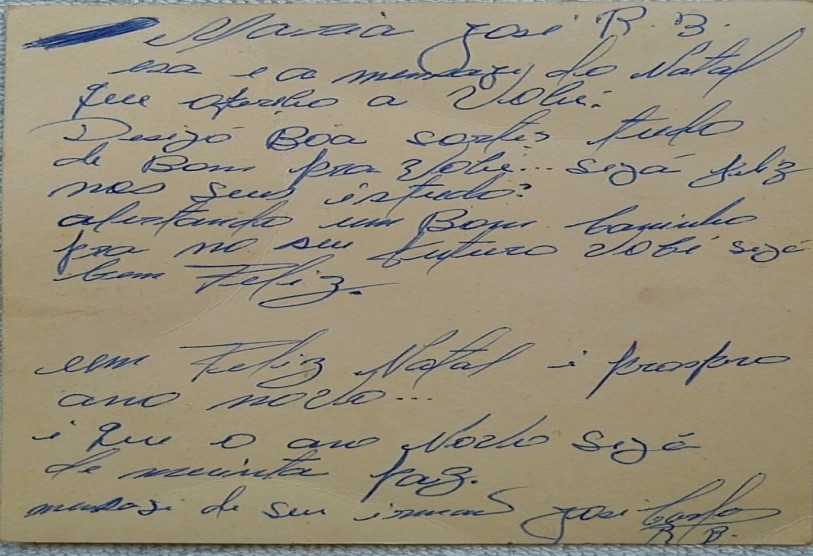 Maria José R. B.
esa e a mensage do Natal
que oferesho a Vobê.
Desejó Bôa sortes tudo
de Bom pra Vobê... sejá feliz
nos seus istudo?
alistando um Bom Caminho
pra no seu futuro Vobê sejá
bem Feliz.
um Feliz Natal i prospro
ano novo...
i que o ano Novo Sejá
de muinta paz.
mensage de seu irmão José Carlos
R B.